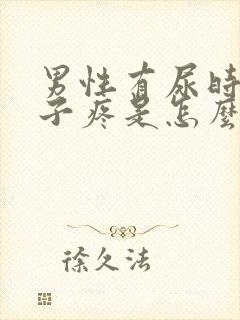 男性有尿时
子疼是怎麼
徐久法